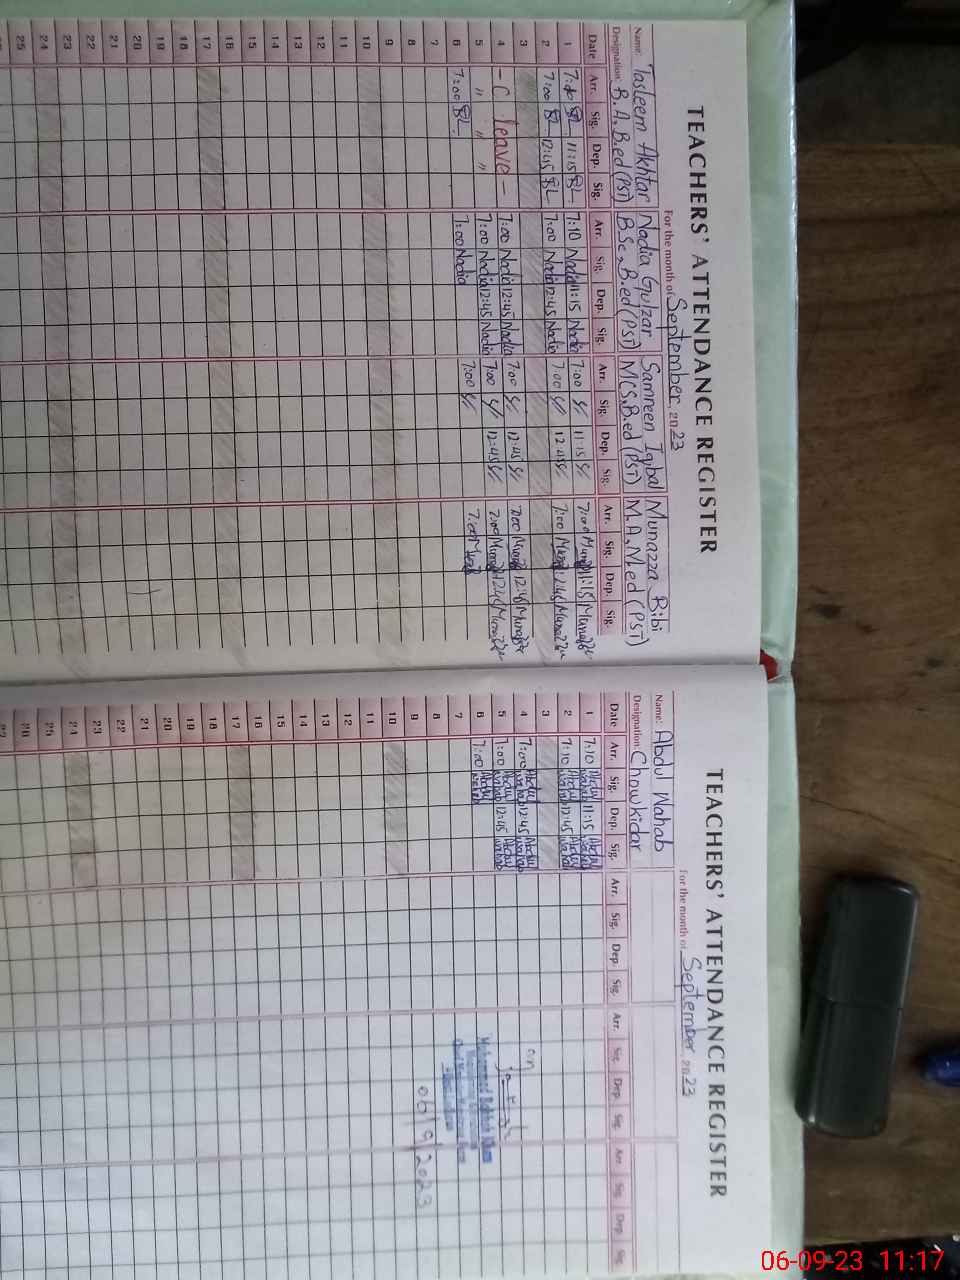 TEACHERS' ATTENDANCE REGISTER
For the month of September, 2023
Name: Tasleem Akhtar Nadia Gulzar Samreen Iqbal Munazza Bibi
Designation: B.A, B.ed (PST) BSc, B.ed (PST) MCS, B.ed (PST) M.A, M.ed (PST)
Date Arr. Sig. Dep. Sig. Arr. Sig. Dep. Sig. Arr. Sig. Dep. Sig. Arr. Sig. Dep. Sig.
1 7:00 11:15 7:10 Nadia 11:15 Nadia 7:00 11:15 7:00 11:15
2 7:00 12:45 7:00 Nadia 12:45 Nadia 7:00 12:45 7:00 12:45
3
4 - C leave - 7:00 Nadia 12:45 Nadia 7:00 12:45 7:00 12:45
5 " " " 7:00 Nadia 12:45 Nadia 7:00 12:45 7:00 12:45
6 7:00 7:00 Nadia 7:00 7:00
7
8
9
10
11
12
13
14
15
16
17
18
19
20
21
22
23
24
25
TEACHERS' ATTENDANCE REGISTER
For the month of September, 2023
Name: Abdul Wahab
Designation: Chowkidar
Date Arr. Sig. Dep. Sig. Arr. Sig. Dep. Sig. Arr. Sig. Dep. Sig. Arr. Sig. Dep. Sig.
1 7:10 Abdul Wahab 11:15 Abdul Wahab
2 7:10 Abdul Wahab 12:45 Abdul Wahab
3
4 7:00 Abdul Wahab 12:45 Abdul Wahab
5 7:00 Abdul Wahab 12:45 Abdul Wahab
6 7:00 Abdul Wahab
7
8
9
10
11
12
13
14
15
16
17
18
19
20
21
22
23
24
25
26
06/9/2023
06-09-23 11:17